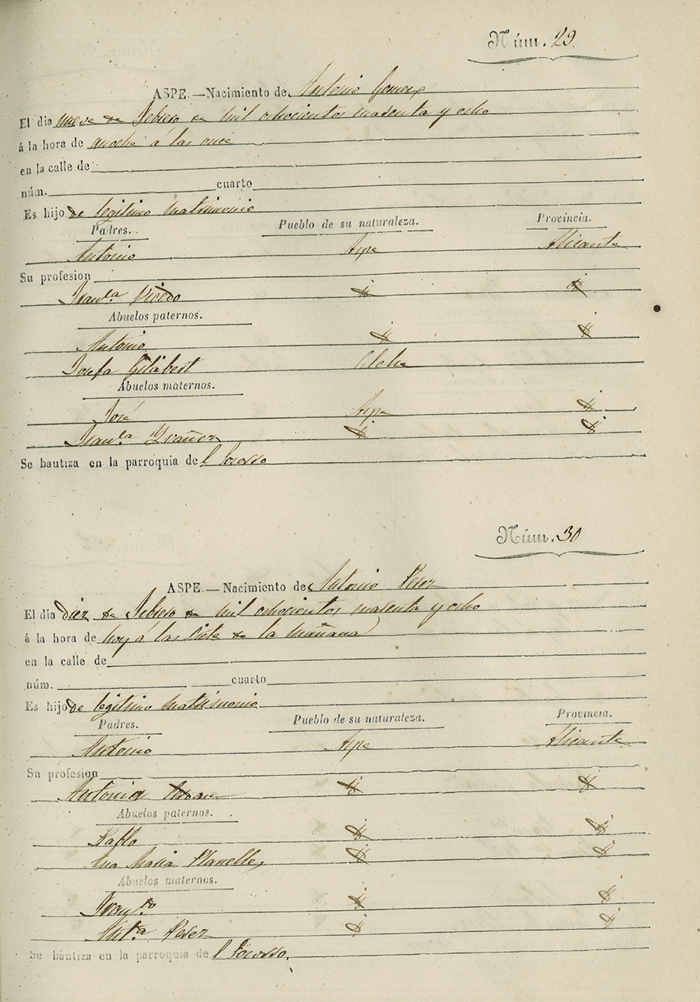 Núm. 29
ASPE.—Nacimiento de Antonio Gomez
El dia nueve de Febrero de mil ochocientos sesenta y ocho
á la hora de anoche a las once
en la calle de
núm. cuarto
Es hijo de legitimo matrimonio
Padres. Pueblo de su naturaleza. Provincia.
Antonio Aspe Alicante
Su profesion
Abuelos paternos.
Antonio
Josefa Gilabert Elche
Abuelos maternos.
José Aspe
Se bautiza en la parroquia de l Socorro
Núm. 30
ASPE.—Nacimiento de Antonio Perez
El dia diez de Febrero de mil ochocientos sesenta y ocho
á la hora de hoy a las siete de la mañana
en la calle de
núm. cuarto
Es hijo de legitimo matrimonio
Padres. Pueblo de su naturaleza. Provincia.
Antonio Aspe Alicante
Su profesion
Antonia
Abuelos paternos.
Pablo
Ana Maria Planelles
Abuelos maternos.
Perez
Se bautiza en la parroquia de l Socorro.